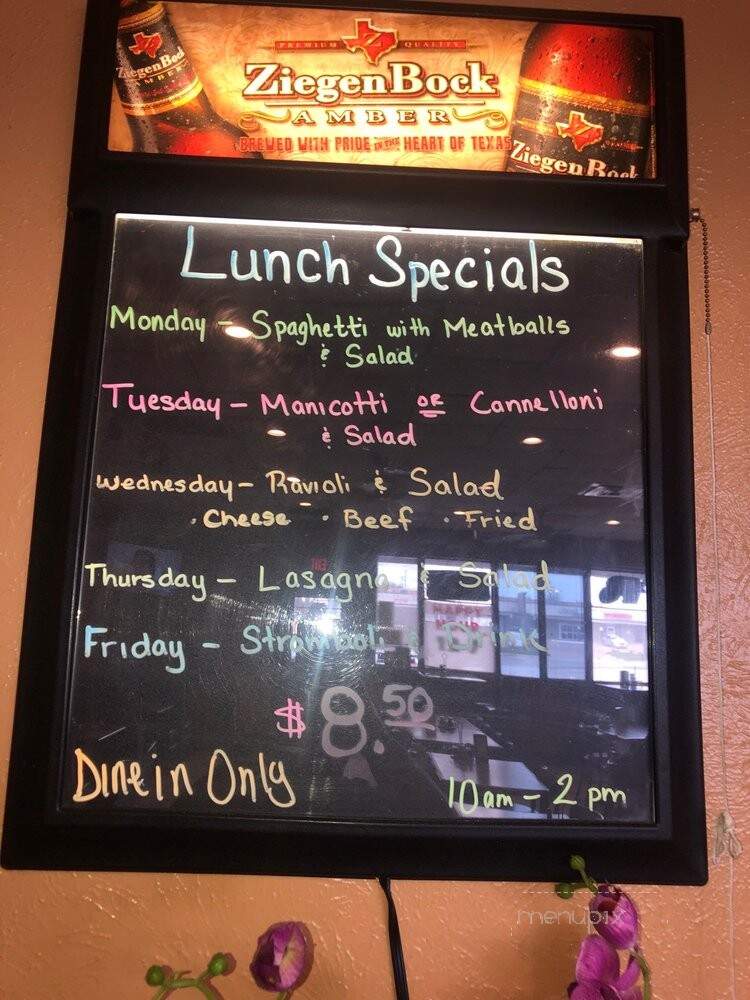 ZiegenBock
AMBER
PREMIUM QUALITY
ZiegenBock
AMBER
BREWED WITH PRIDE IN THE HEART OF TEXAS
ZiegenBock
Lunch Specials
Monday - Spaghetti with Meatballs
& Salad
Tuesday - Manicotti OR Cannelloni
& Salad
Wednesday - Ravioli & Salad
· Cheese · Beef · Fried
Thursday - Lasagna & Salad
Friday - Stromboli & Drink
$8.50
Dine in Only
10am - 2 pm
HAPPY
HOUR
menupix